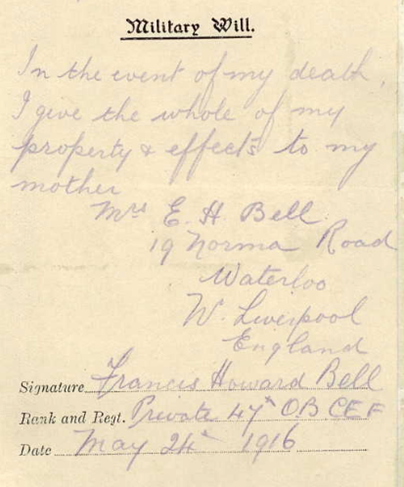 Military Will.
In the event of my death,
I give the whole of my
property & effects to my
mother
Mrs E. H. Bell
19 Norma Road
Waterloo
Liverpool
England
Signature Francis Howard Bell
Rank and Regt. Private 47th CEF
Date May 24th 1916